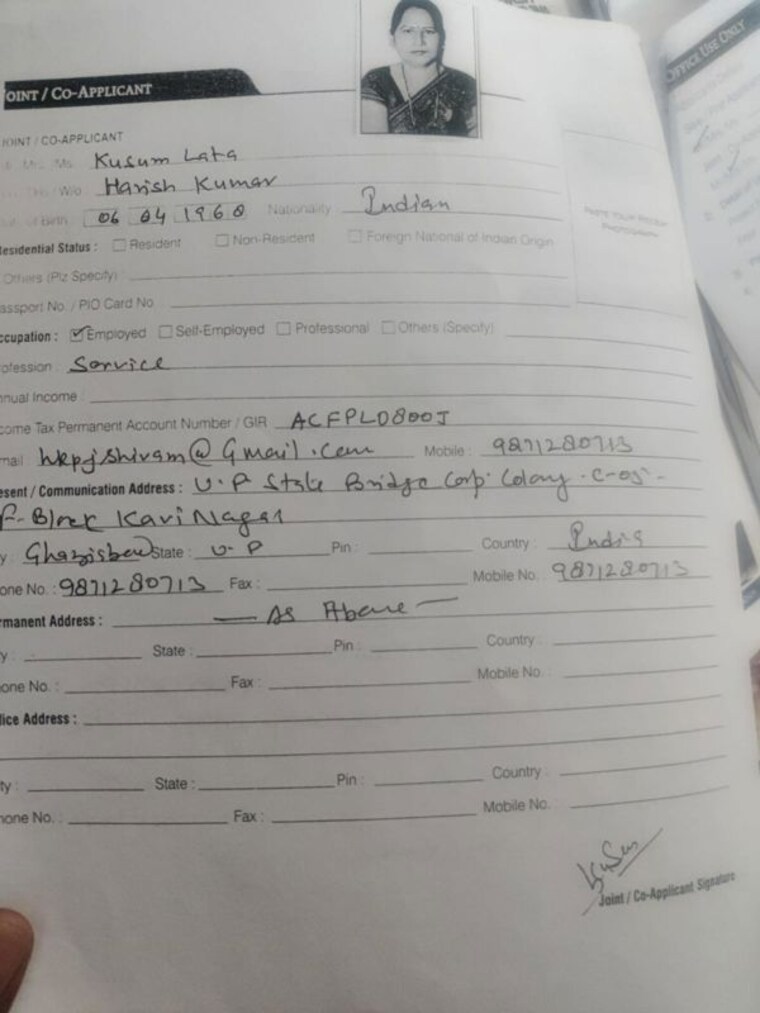 OFFICE USE ONLY
JOINT / CO-APPLICANT
JOINT / CO-APPLICANT
Kusum Lata
W/o Harish Kumar
Birth : 06 04 1968 Nationality : Indian
Residential Status : Resident Non-Resident Foreign National of Indian Origin
Others (Plz Specify)
Passport No. / PIO Card No.
Occupation : Employed Self-Employed Professional Others (Specify)
Profession : Service
Annual Income :
Income Tax Permanent Account Number / GIR ACFPL0800J
Email : hkpjshivam@Gmail.com Mobile : 9871280713
Present / Communication Address : U.P State Bridge Corp. Colony. C-05-
F-Block Kavi Nagar
City : Ghaziabad State : U-P Pin : Country : India
Phone No. : 9871280713 Fax : Mobile No. : 9871280713
Permanent Address : — As Above —
City : State : Pin : Country :
Phone No. : Fax : Mobile No. :
Office Address :
City : State : Pin : Country :
Phone No. : Fax : Mobile No. :
Kusum
Joint / Co-Applicant Signature